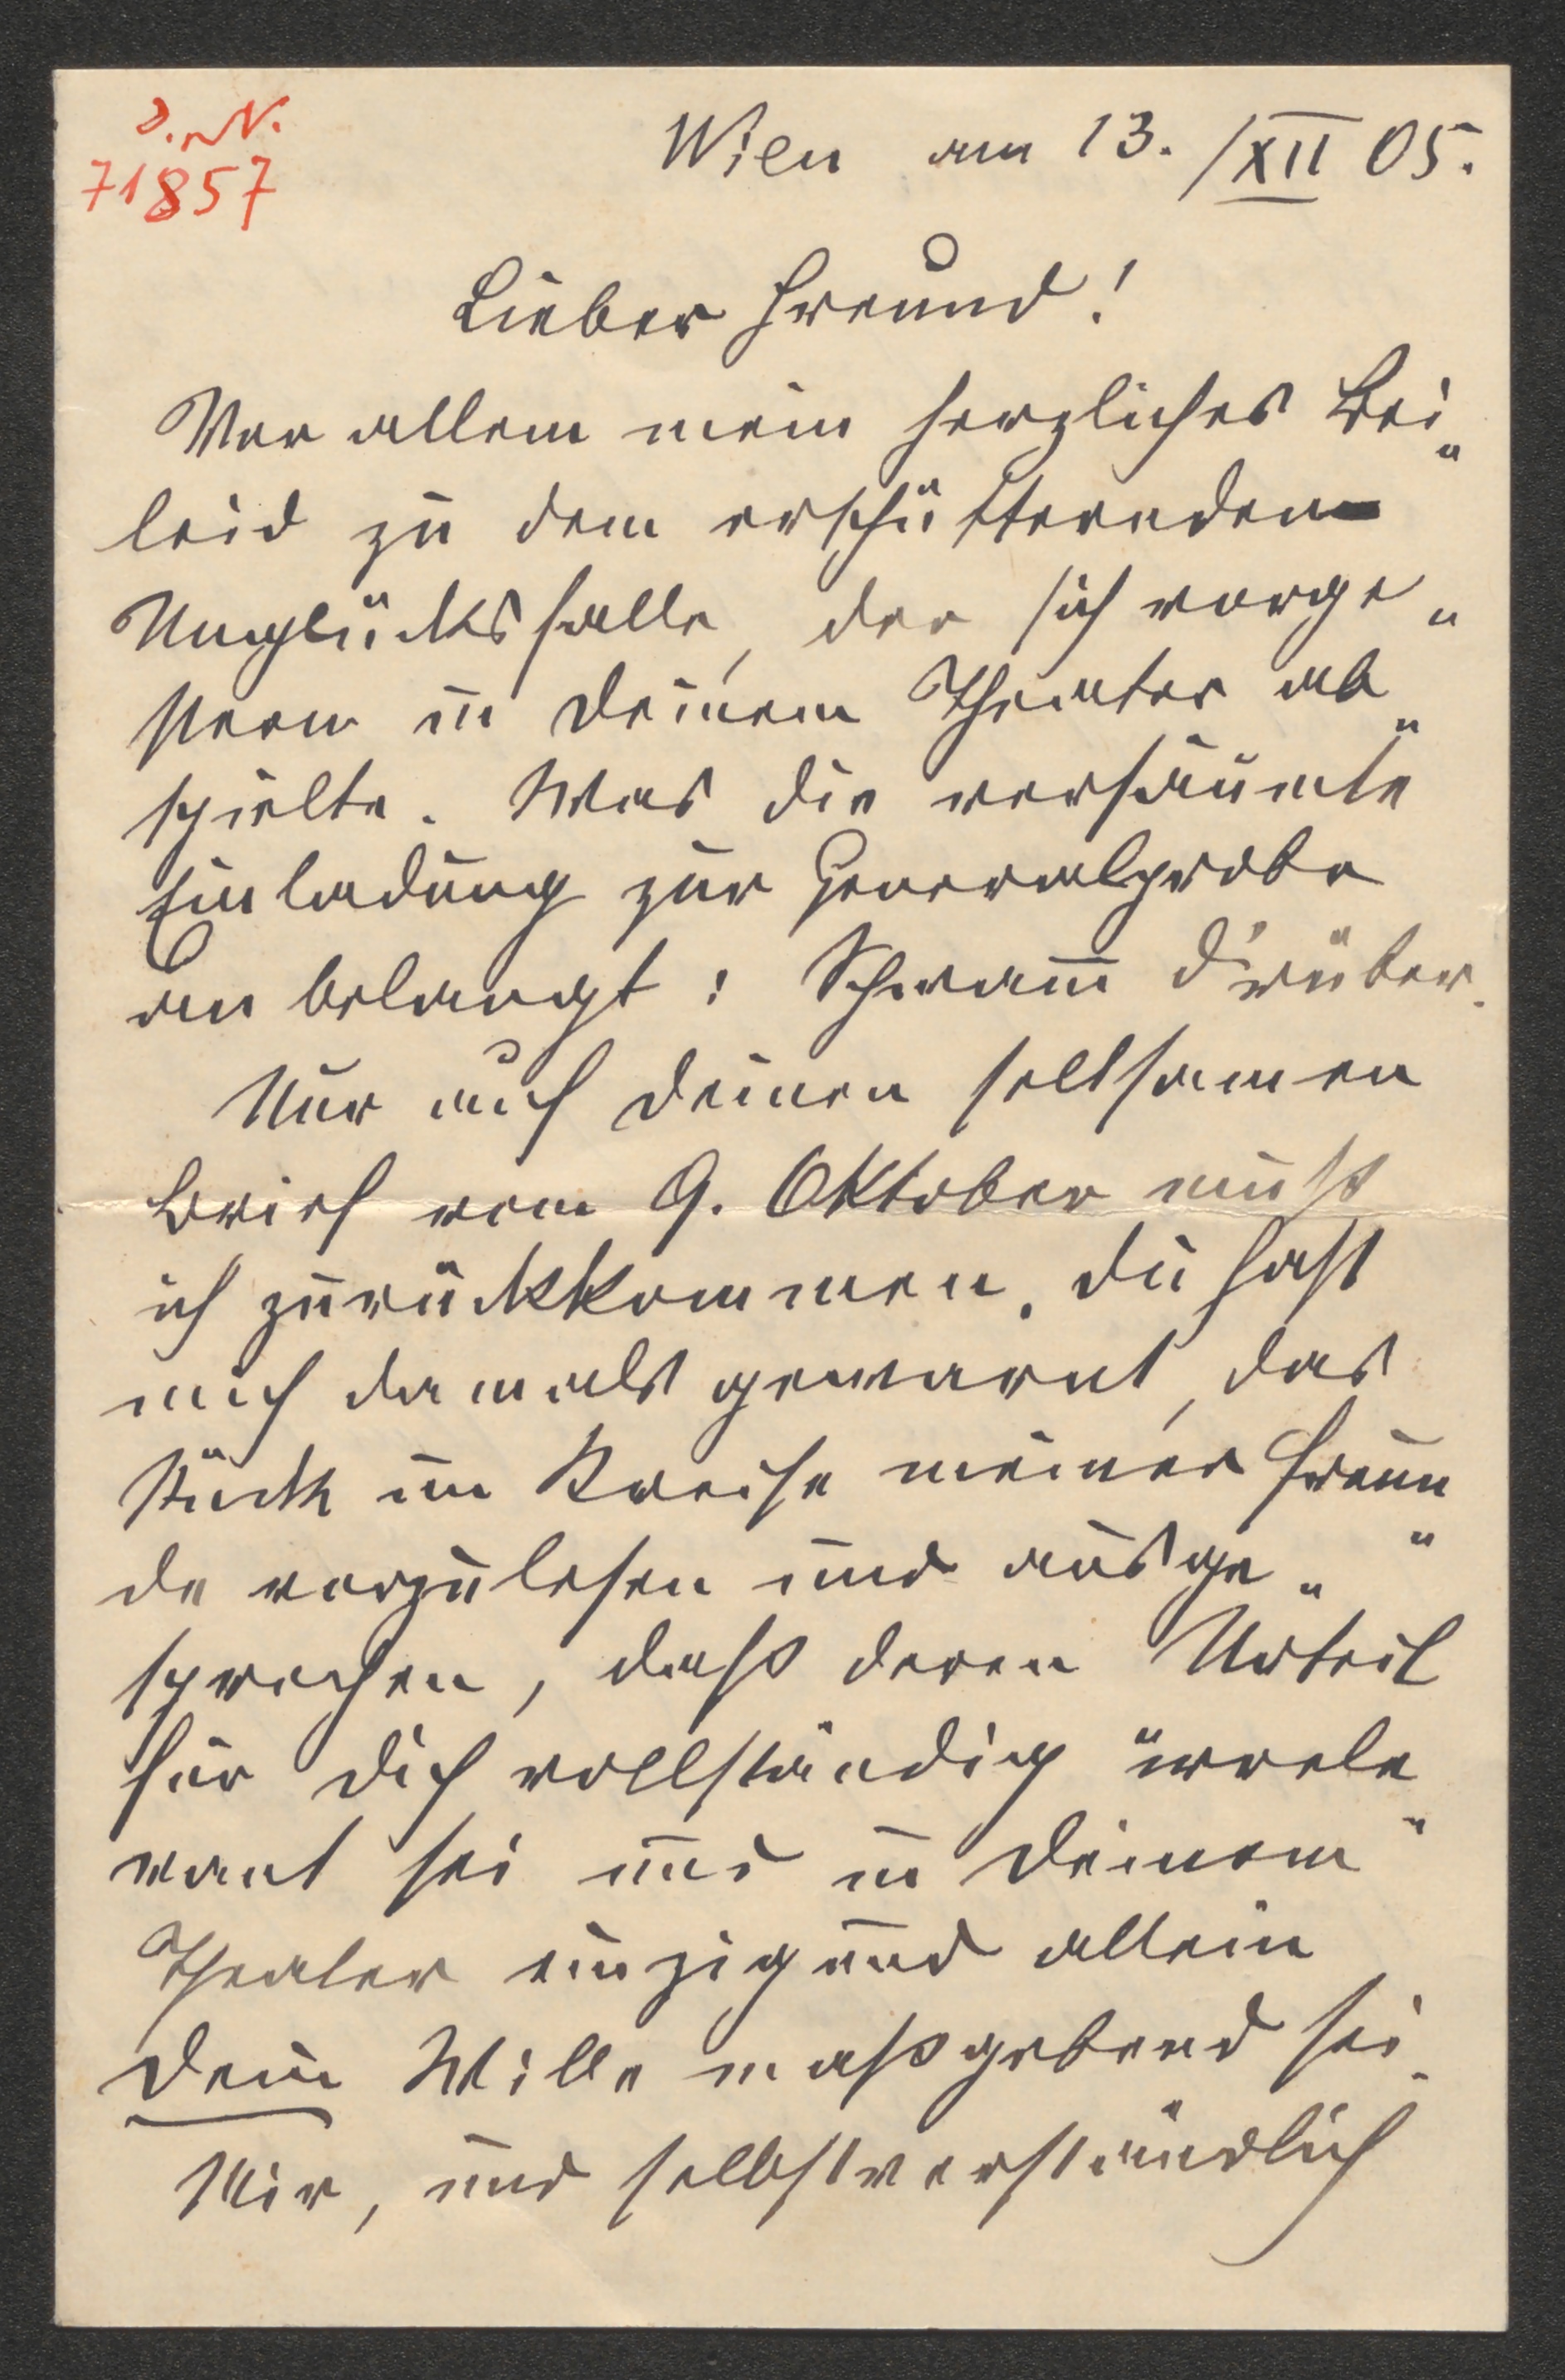 J.N.
71857
Wien am 13./XII 05.
Lieber Freund!
Vor allem mein herzliches Bei„
leid zu dem erschütternden
Unglücksfalle, der sich vorge„
stern in Deinem Theater ab„
spielte. Was die versäumte
Einladung zur Generalprobe
an belangt: Schwam̅ d'rüber.
Nur auf Deinen seltsamen
Brief vom 9. Oktober muß
ich zurückkommen. Du hast
mich damals gewarnt, das
Stück im Kreise meiner Freun„
de vorzulesen und ausge„
sprochen, daß deren Urteil
für Dich vollständig irrele„
vant sei und in Deinem
Theater einzig und allein
Dein Wille maßgebend sei.
Mir, und selbstverständlich